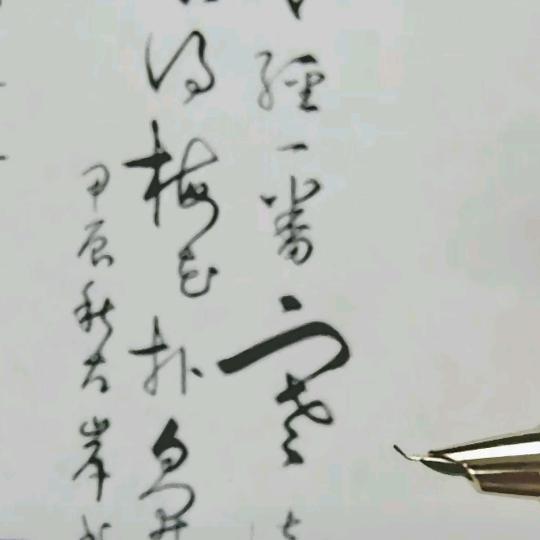 經一番寒
得梅花扑鼻
甲辰秋古岸